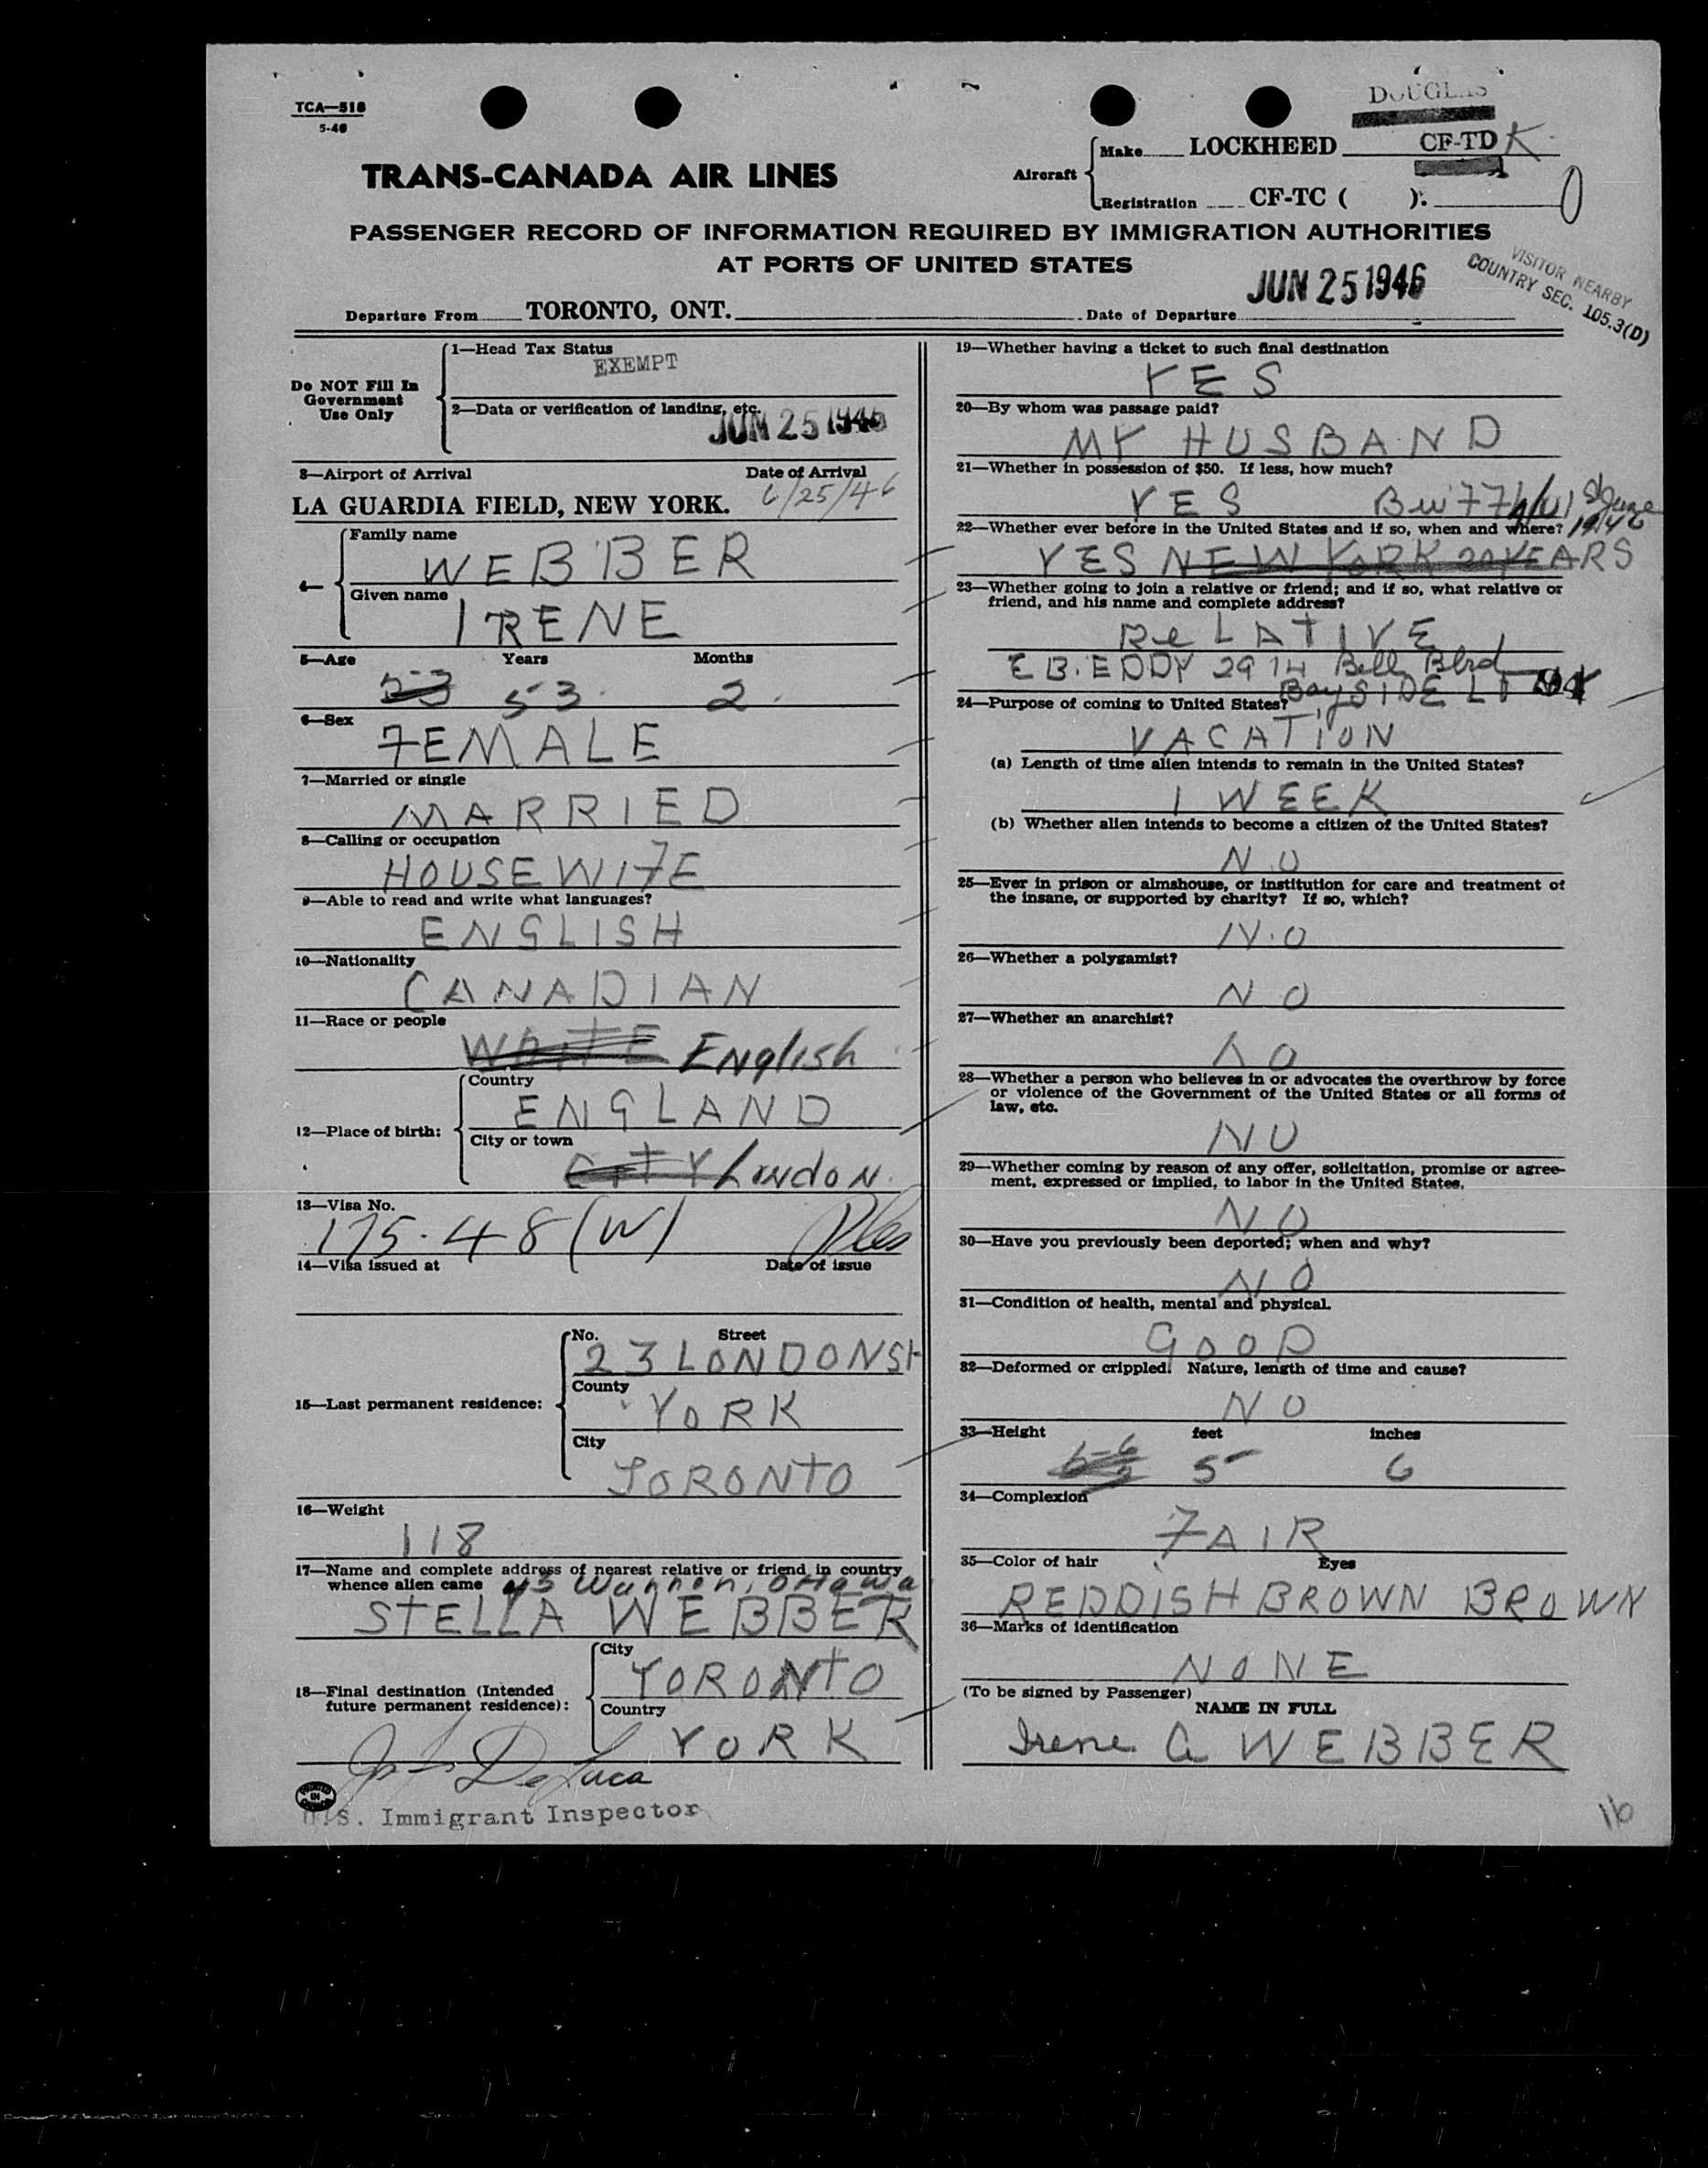 TCA—518
5-46
DOUGLAS
TRANS-CANADA AIR LINES
Aircraft
Make LOCKHEED CF-TD K
Registration CF-TC ( ):
PASSENGER RECORD OF INFORMATION REQUIRED BY IMMIGRATION AUTHORITIES
AT PORTS OF UNITED STATES
VISITOR NEARBY
COUNTRY SEC. 105.3(D)
Departure From TORONTO, ONT. Date of Departure JUN 25 1946
Do NOT Fill In
Government
Use Only
1—Head Tax Status
EXEMPT
2—Data or verification of landing, etc.
JUN 25 1946
3—Airport of Arrival Date of Arrival
LA GUARDIA FIELD, NEW YORK. 6/25/46
4—
Family name
WEBBER
Given name
IRENE
5—Age Years Months
53 2
6—Sex
FEMALE
7—Married or single
MARRIED
8—Calling or occupation
HOUSEWIFE
9—Able to read and write what languages?
ENGLISH
10—Nationality
CANADIAN
11—Race or people
WHITE English
12—Place of birth:
Country
ENGLAND
City or town
CITY London
13—Visa No.
175.48 (W)
14—Visa issued at Date of issue
15—Last permanent residence:
No. Street
23 LONDON St
County
YORK
City
TORONTO
16—Weight
118
17—Name and complete address of nearest relative or friend in country
whence alien came Ottawa
STELLA WEBBER
18—Final destination (Intended
future permanent residence):
City
TORONTO
Country
YORK
De Luca
U.S. Immigrant Inspector
19—Whether having a ticket to such final destination
YES
20—By whom was passage paid?
MY HUSBAND
21—Whether in possession of $50. If less, how much?
YES
22—Whether ever before in the United States and if so, when and where? 1946
YES NEW YORK 20 YEARS
23—Whether going to join a relative or friend; and if so, what relative or
friend, and his name and complete address?
ReLATIVE
E B. EDDY 2914 Bell Blrd
BaySIDE L I NY
24—Purpose of coming to United States?
VACATION
(a) Length of time alien intends to remain in the United States?
1 WEEK
(b) Whether alien intends to become a citizen of the United States?
NO
25—Ever in prison or almshouse, or institution for care and treatment of
the insane, or supported by charity? If so, which?
NO
26—Whether a polygamist?
NO
27—Whether an anarchist?
NO
28—Whether a person who believes in or advocates the overthrow by force
or violence of the Government of the United States or all forms of
law, etc.
NO
29—Whether coming by reason of any offer, solicitation, promise or agree-
ment, expressed or implied, to labor in the United States.
NO
30—Have you previously been deported; when and why?
NO
31—Condition of health, mental and physical.
GOOD
32—Deformed or crippled. Nature, length of time and cause?
NO
33—Height feet inches
5 6
34—Complexion
FAIR
35—Color of hair Eyes
REDDISH BROWN BROWN
36—Marks of identification
NONE
(To be signed by Passenger)
NAME IN FULL
Irene A WEBBER
16